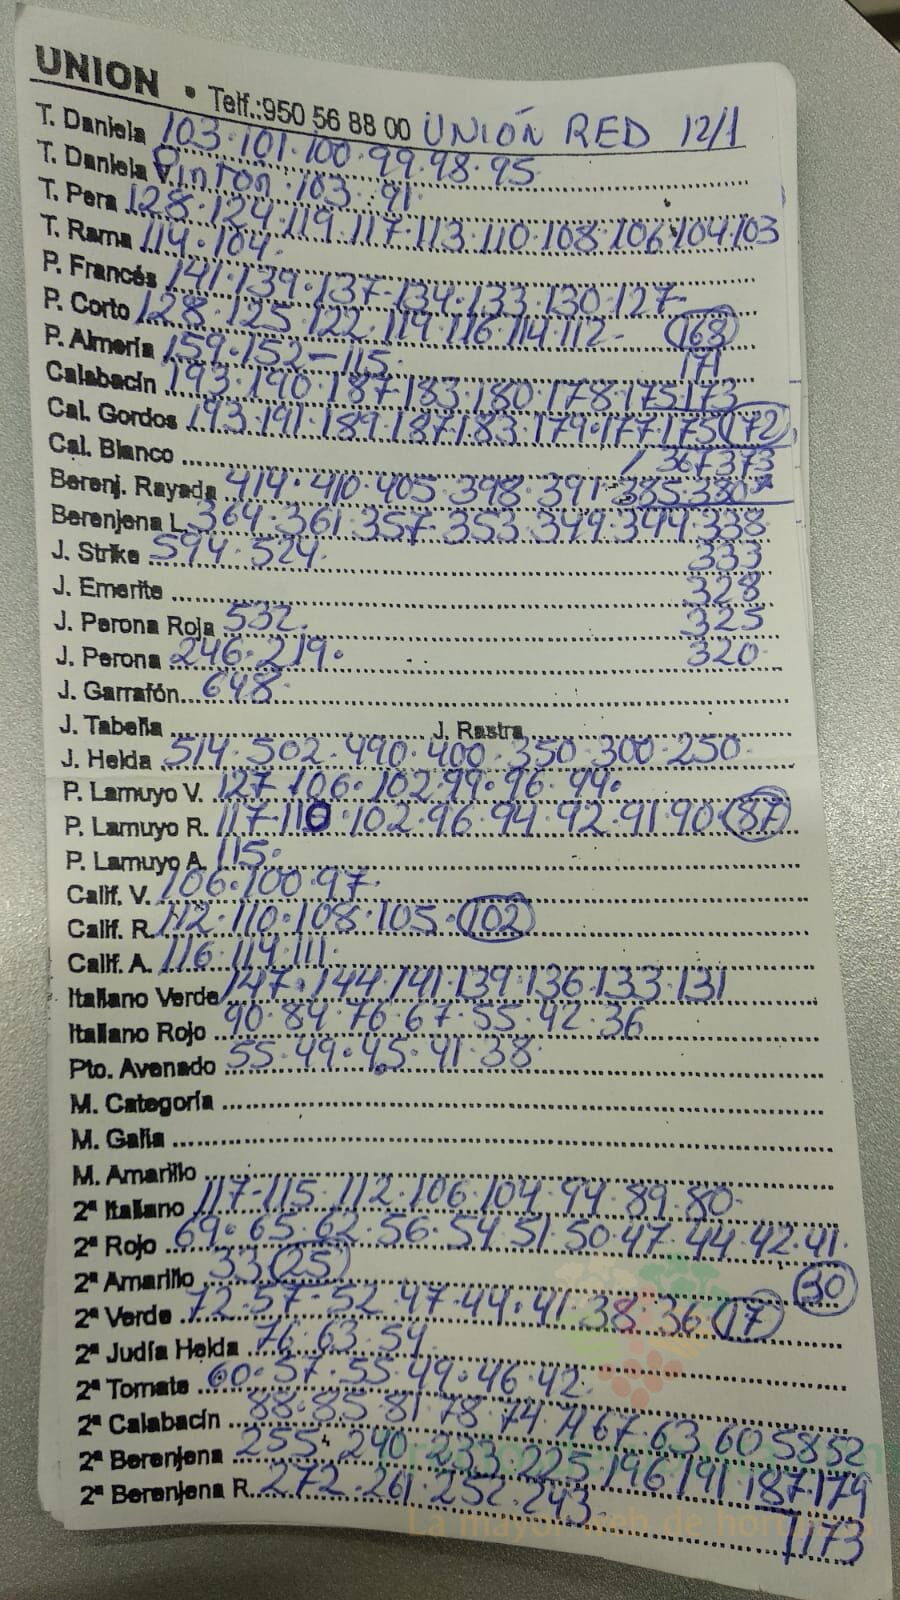 UNION • Telf.:950 56 88 00 UNIÓN RED 12/1
T. Daniela 103·101·100·99·98·95
T. Daniela Pinton·103·91·
T. Pera 128·124·119·117·113·110·108·106·104·103
T. Rama 114·104·
P. Francés 141·139·137-134·133·130·127-
P. Corto 128·125·122·119·116·114·112- 168
P. Almería 159·152-115· 171
Calabacín 193·190·187·183·180·178·175·173
Cal. Gordos 193·191·189·187·183·179·177·175 172
Cal. Blanco / 367 373
Berenj. Rayada 414·410·405·398·391·385·380
Berenjena L. 364·361·357·353·349·344·338
J. Strike 594·524· 333
J. Emerite 328
J. Perona Roja 532· 325
J. Perona 246·219· 320·
J. Garrafón 648·
J. Tabella J. Rastra
J. Helda 514·502·490·400·350·300·250·
P. Lamuyo V. 127·106·102·99·96·94·
P. Lamuyo R. 117-110·102·96·94·92·91·90·87
P. Lamuyo A. 115·
Calif. V. 106·100·97·
Calif. R. 112·110·108·105·102
Calif. A. 116·114·111·
Italiano Verde 147·144·141·139·136·133·131
Italiano Rojo 90·84·76·67·55·42·36
Pto. Avenado 55·49·45·41·38·
M. Categoría
M. Galia
M. Amarillo
2ª Italiano 117-115·112·106·104·94·89·80·
2ª Rojo 69·65·62·56·54·51·50·47·44·42·41·
2ª Amarillo 33 25 30
2ª Verde 72·57-52·47-44·41·38·36 17
2ª Judía Helda 76·63·54
2ª Tomate 60·57·55·49·46·42·
2ª Calabacín 88·85·81·78·74·71 67·63·60 58 52
2ª Berenjena 255·240·233·225·196·191·187·179
2ª Berenjena R. 272·261·252·243· 173
La mayor web de